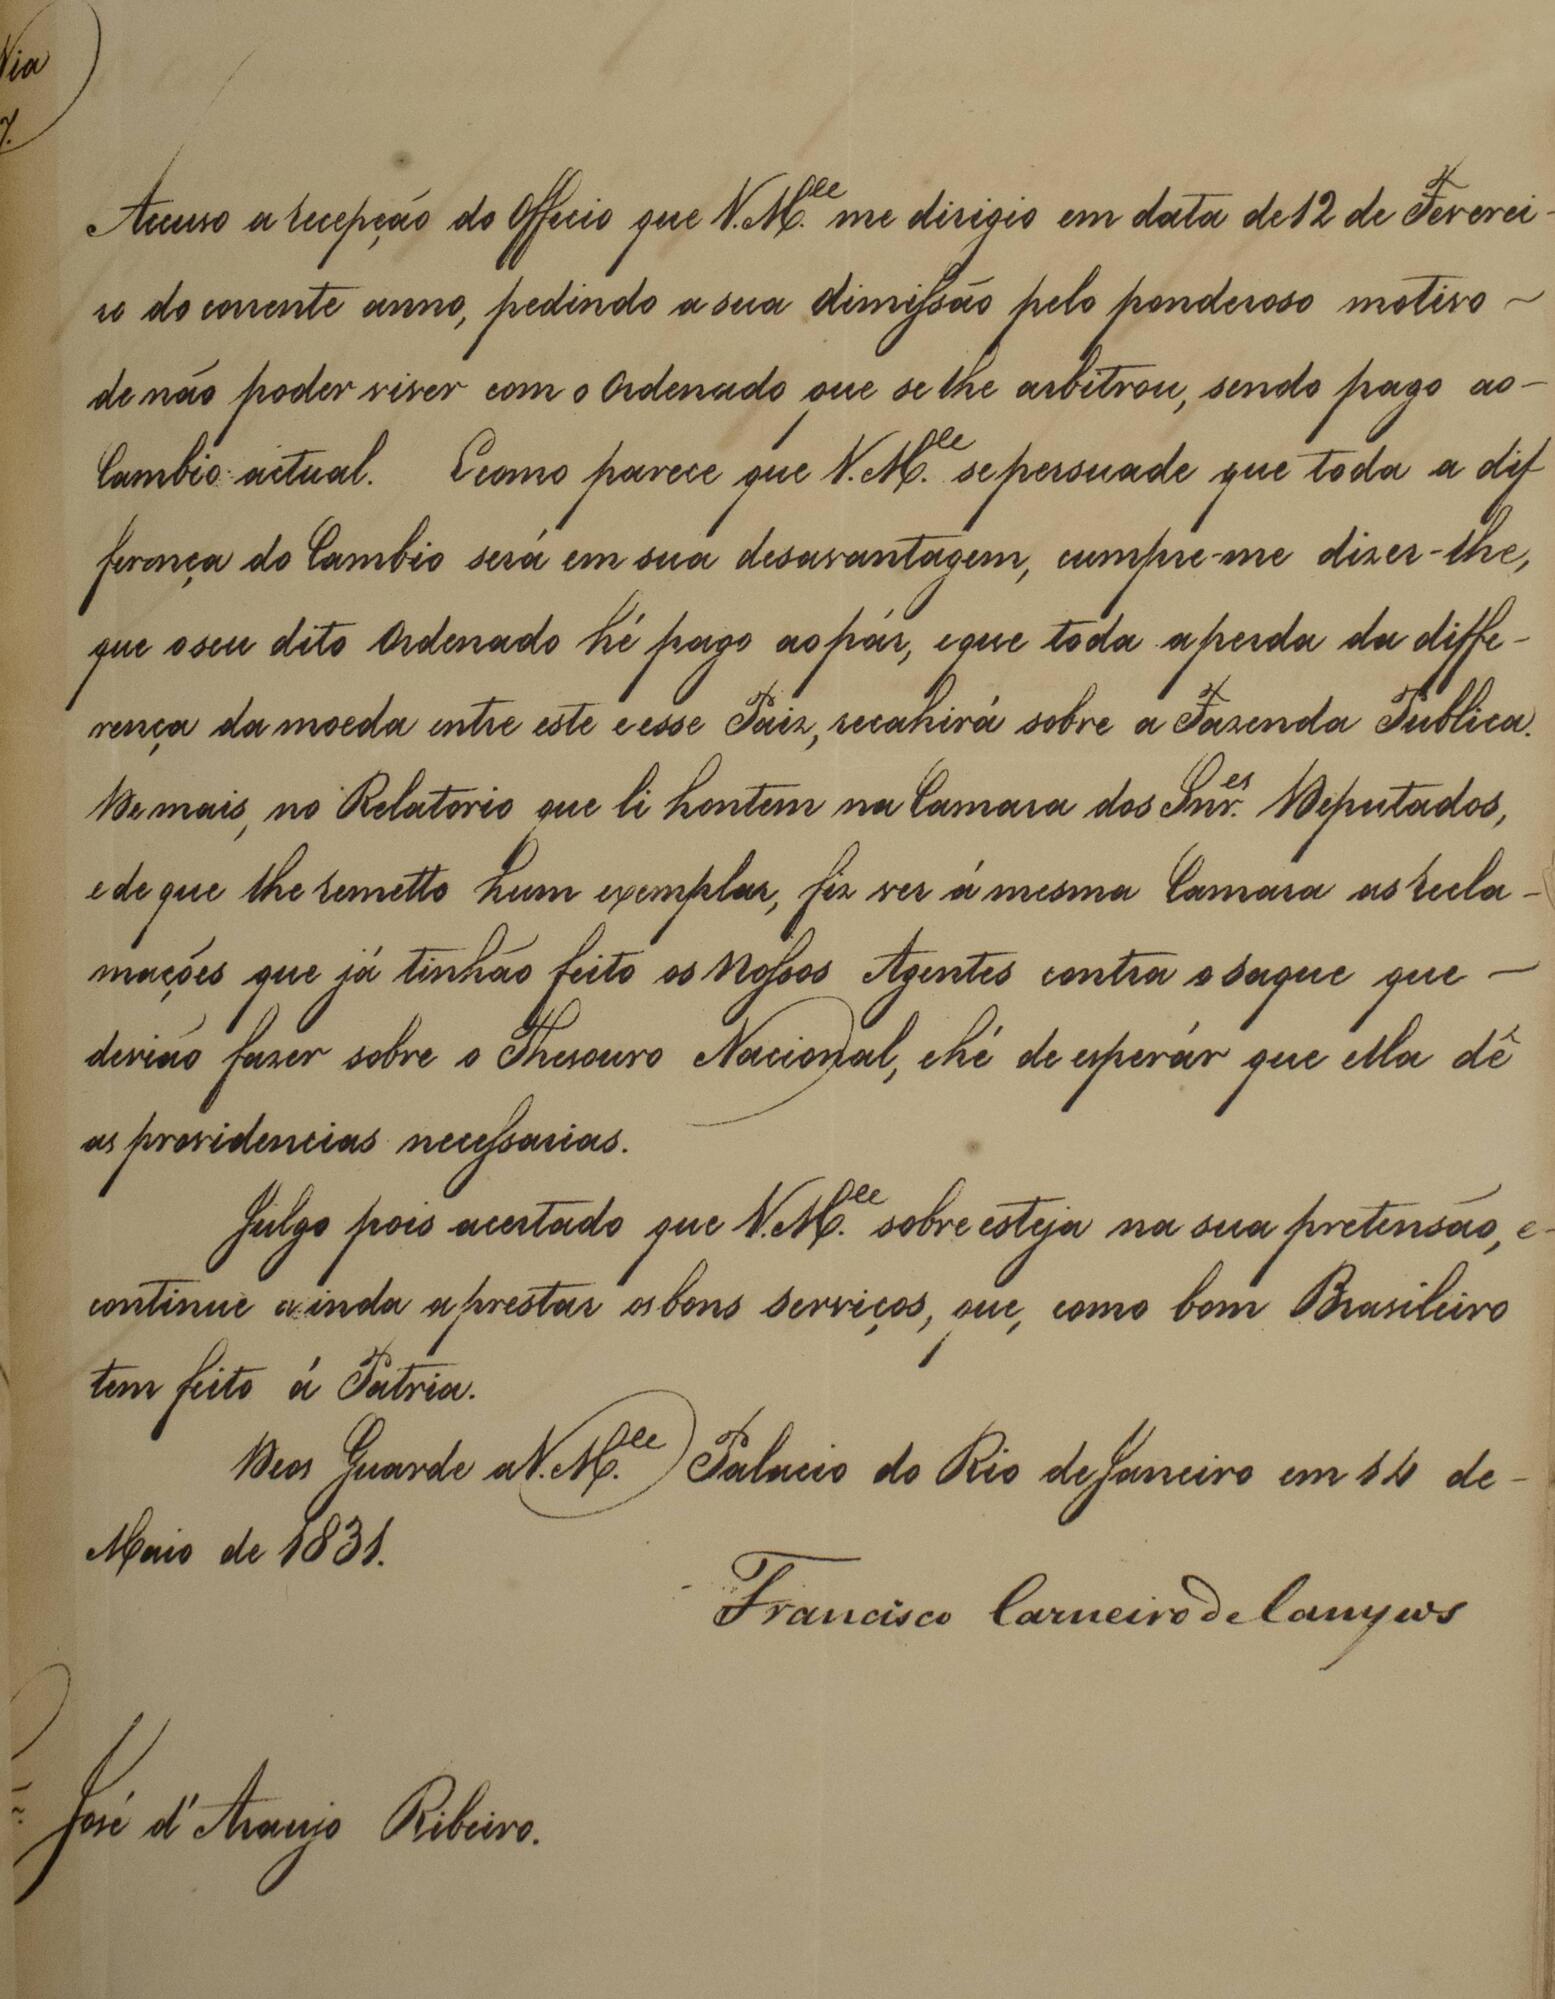 Via
Accuso a recepção do Officio que V. M.ce me dirigio em data de 12 de Feverei-
ro do corrente anno, pedindo a sua dimissão pelo ponderoso motivo
de não poder viver com o Ordenado que se lhe arbitrou, sendo pago ao
Cambio actual. E como parece que V. M.ce se persuade que toda a dif
ferença do Cambio será em sua desavantagem, cumpre-me dizer-lhe,
que o seu dito Ordenado hé pago ao pár, e que toda a perda da diffe-
rença da moeda entre este e esse Paiz, recahirá sobre a Fazenda Publica.
De mais, no Relatorio que li hontem na Camara dos Snr.es Deputados,
e de que lhe remetto hum exemplar, fiz ver á mesma Camara as recla-
mações que já tinhão feito os Nossos Agentes contra o saque que
devião fazer sobre o Thesouro Nacional, e hé de esperár que ella dê
as providencias necessarias.
Julgo pois acertado que V. M.ce sobreesteja na sua pretensão, e
continue ainda a prestar os bons serviços, que, como bom Brasileiro
tem feito á Patria.
Deos Guarde a V. M.ce Palacio do Rio de Janeiro em 14 de
Maio de 1831.
Francisco Carneiro de Campos
José d'Araujo Ribeiro.